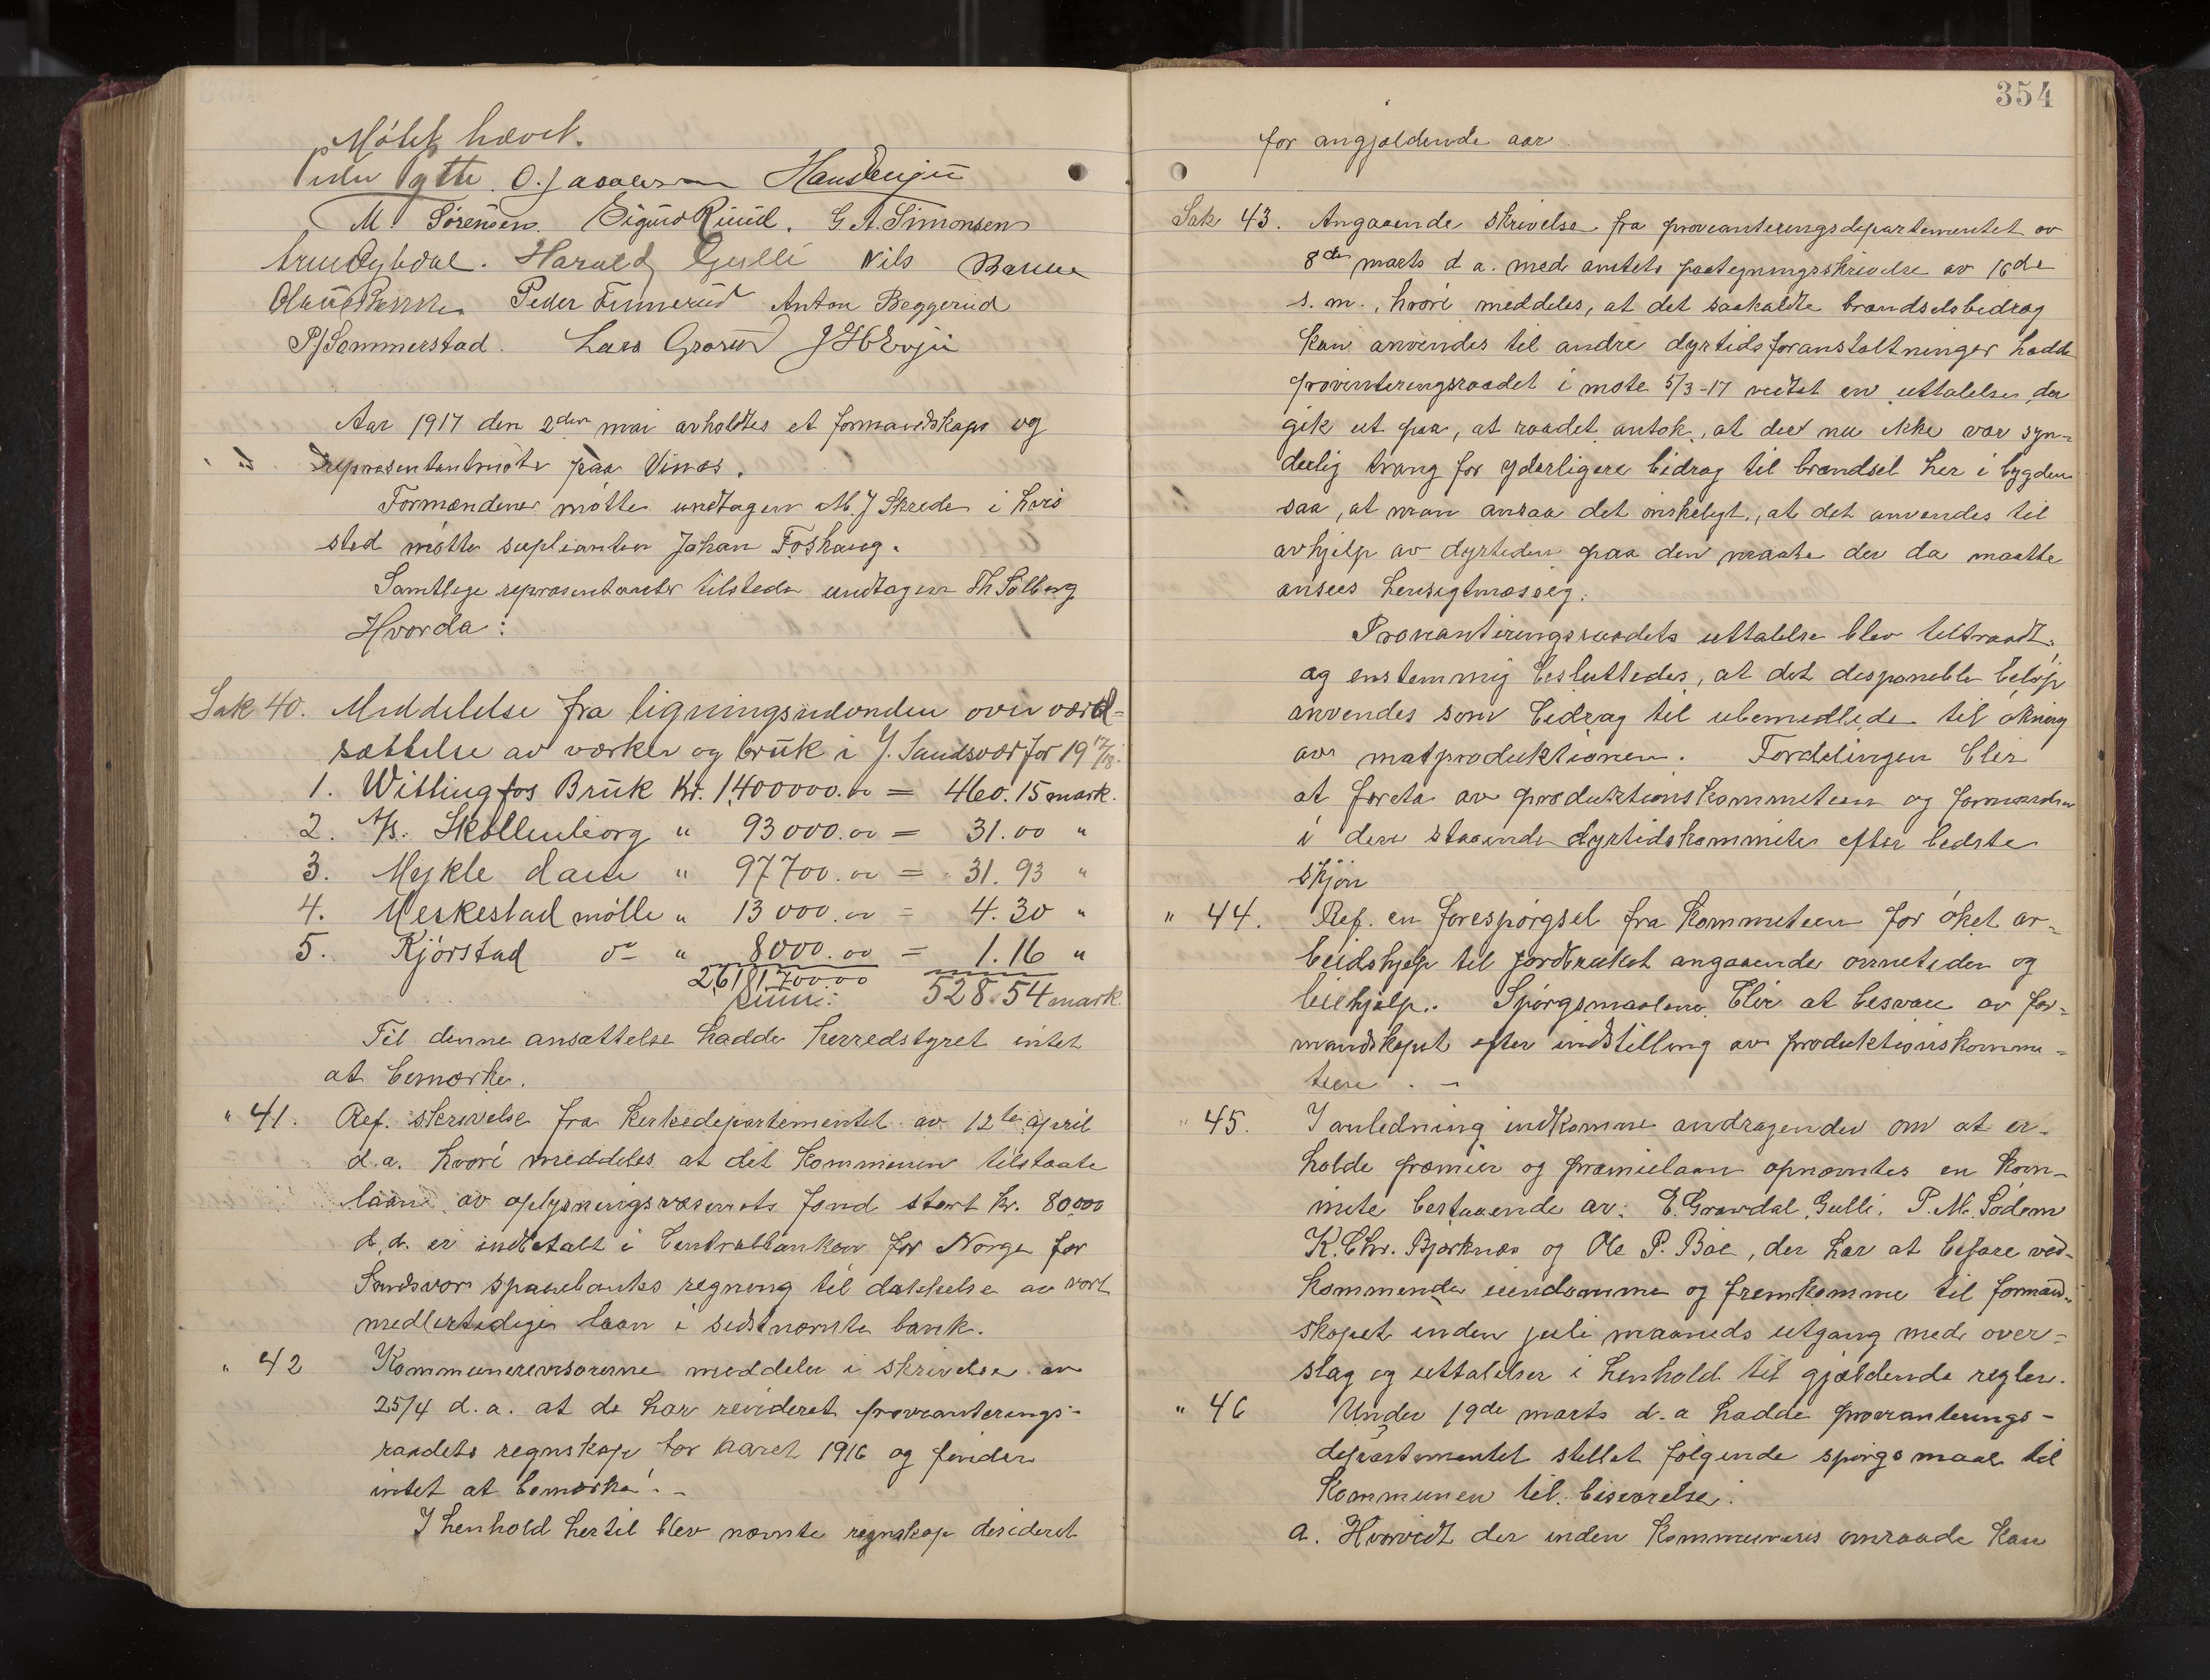 Møtet hævet.
O. Jacobsen Hans Evju
M. Sørensen. Sigurd Ruud. G. A. Simonsen
Harald Gulli Nils
Peder Finnerud Anton Beggerud
P J Sommerstad. Lars J H Evju
Aar 1917 den 2den mai avholdtes et formandskaps og
representantmøte paa Vinæs.
Formændene møtte undtagen M. J Skrede i hvis
sted møtte suplianten Johan Foshaug.
Samtlige representanter tilstede undtagen Th Solberg
Hvorda:
Sak 40. Meddelelse fra ligningsnævnden over værd-
sættelse av værker og bruk i Y. Sandsvær for 1917/18.
1. Wittingfos Bruk Kr. 1,400000.00 = 460.15 mark.
2. A/S. Skollenborg " 93000.00 = 31.00 "
3. Mykle dam " 97700.00 = 31.93 "
4. Meskestad mølle " 13000.00 = 4.30 "
5. Kjørstad do " 8000.00 = 1.16 "
528.54 mark
Til denne ansættelse hadde herredstyret intet
at bemerke.
" 41. Ref. skrivelse fra kirkedepartementet av 12te april
d.a. hvori meddeles at det kommunen tilstaate
laan av oplysningsvæsenets fond stort kr. 80,000
d.d. er indbetalt i Centralbanken for Norge for
Sandsvær sparebanks regning til dækkelse av vort
medlertidige laan i sidstnævnte bank.
" 42 Kommunerevisorerne meddeler i skrivelse av
25/4 d.a. at de har revideret provianterings-
raadets regnskap for aaret 1916 og finder
intet at bemerke. -
I henhold hertil blev nævnte regnskap desideret
354
for angjældende aar
Sak 43. Angaaende skrivelse fra provianteringsdepartementet av
8de marts d a. med amtets paategningsskrivelse av 16de
s.m., hvori meddeles, at det saakaldte brændselsbidrag
kan anvendes til andre dyrtidsforanstaltninger hadde
provianteringsraadet i møte 5/3-17 vedtat en uttalelse der
gik ut paa, at raadet antok, at der nu ikke var syn-
derlig trang for yderligere bidrag til brændsel her i bygden
saa, at man ansaa det ønskeligt, at det anvendes til
avhjelp av dyrtiden paa den maate der da maatte
ansees hensigtmæssig.
Provianteringsraadets uttalelse blev tiltraadt,
og enstemmig besluttedes, at det disponible beløp
anvendes som bidrag til ubemidlede til økning
av matproduktionen. Fordelingen blir
at foreta av produktionskommiteen og formændene
i den staaende dyrtidskommite efter bedste
skjøn
" 44. Ref. en forespørgsel fra kommiteen for øket ar-
beidshjelp til jordbruket angaaende onnetiden og
leiehjelp. Spørgsmaalene blir at besvare av for-
mandskapet efter indstilling av produktionskommi-
teen. -
" 45. I anledning indkomne andragender om at er-
holde præmier og præmielaan opnævntes en kom-
mite bestaaende av: E. Grøndal, Gulli, P. M. Sødem
K. Chr. Bjørknæs og Ole P. Bøe, der har at befare ved-
kommende eiendomme og fremkomme til formand-
skapet inden juli maaneds utgang med over-
slag og uttalelser i henhold til gjældende regler.
" 46 Under 19de marts d.a hadde provianterings-
departementet stillet følgende spørgsmaal til
kommunen til besvarelse:
a. Hvorvidt der inden kommunens omraade kan